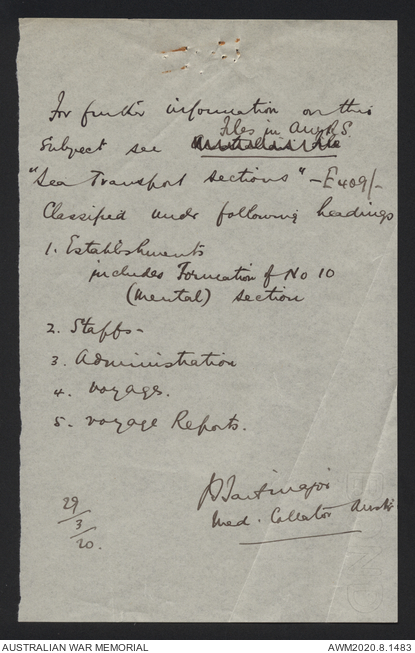 For further information on this
Files in AWRS
Subject see Australian File
"Sea Transport Sections" - E409/-
Classified under following headings
1. Establishments
includes Formation of No 10
(Mental) section
2. Staffs -
3. Administration
4. Voyages.
5. Voyage Reports.
major
Med. Collator Austr
29/3/20.
AUSTRALIAN WAR MEMORIAL
AWM2020.8.1483